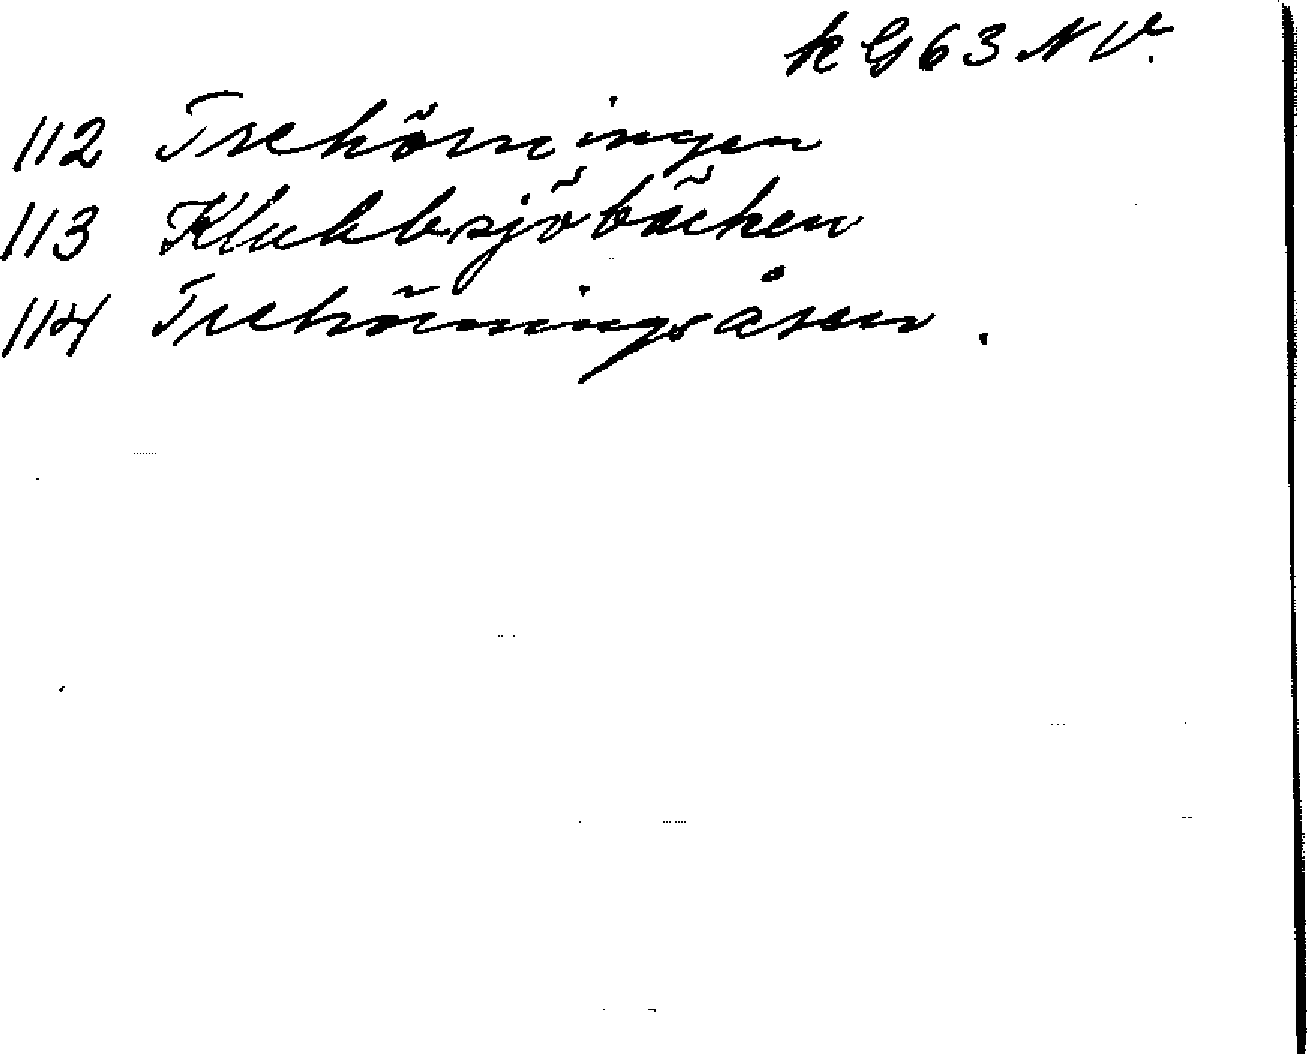 k G 63 NV.
112 Trehörningen
113 Klubbsjöbäcken
114 Trehörningsåsen.